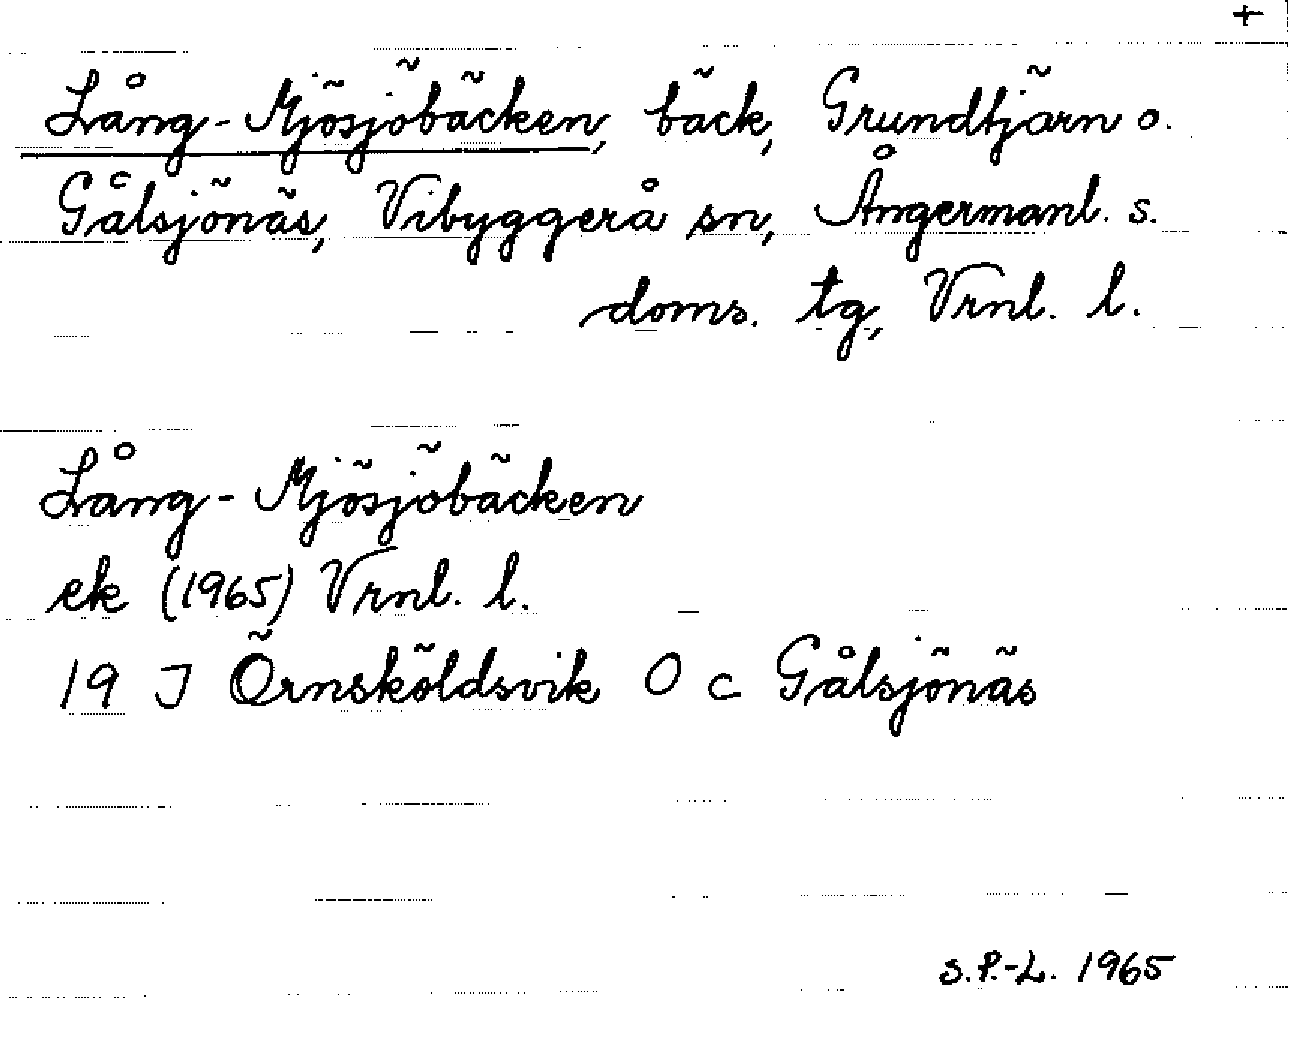 +
Lång-Mjösjöbäcken, bäck, Grundtjärn o.
Gålsjönäs, Vibyggerå sn, Ångermanl. s.
doms. tg, Vrnl. l.
Lång-Mjösjöbäcken
ek (1965) Vrnl. l.
19 J Örnsköldsvik O c Gålsjönäs
S.P.-L. 1965